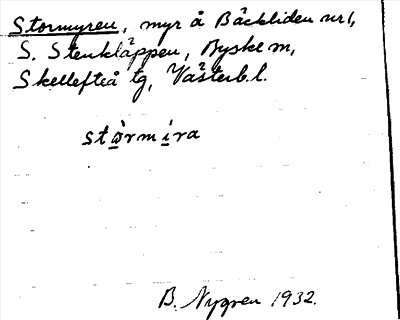 Stormyren, myr å Bäckliden nr 1,
S. Stenkläppen, Byske m,
Skellefteå tg, Västerb.l.
stòrmíra
B. Nygren 1932.